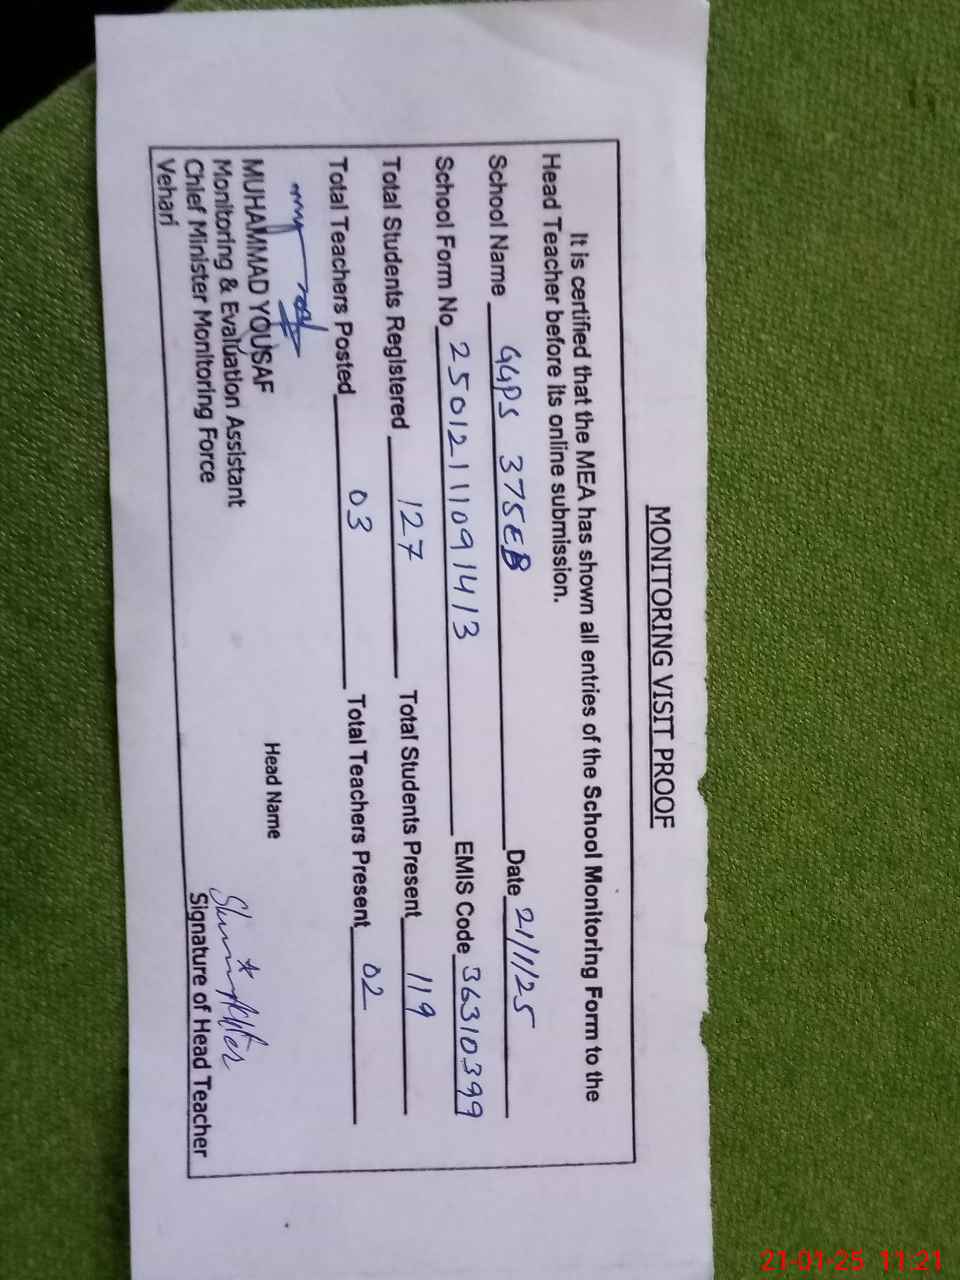 MONITORING VISIT PROOF
It is certified that the MEA has shown all entries of the School Monitoring Form to the
Head Teacher before its online submission.
School Name GGPS 375EB Date 21/1/25
School Form No 25012111091413 EMIS Code 36310399
Total Students Registered 127 Total Students Present 119
Total Teachers Posted 03 Total Teachers Present 02
MUHAMMAD YOUSAF
Monitoring & Evaluation Assistant
Chief Minister Monitoring Force
Vehari
Head Name
Signature of Head Teacher
21-01-25 11:21